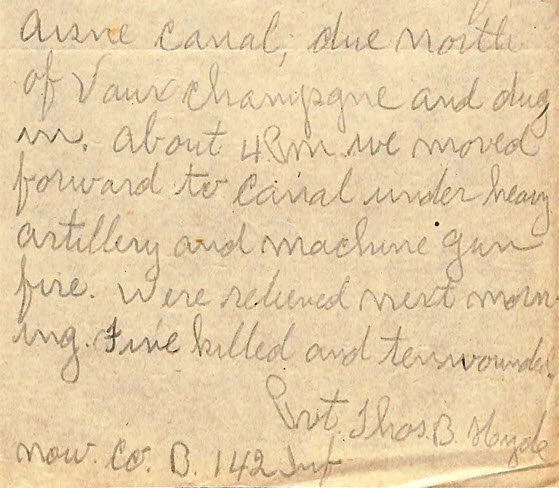 Aisne Canal, due north
of Vaux Champagne and dug
in. About 4 Pm we moved
forward to canal under heavy
artillery and machine gun
fire. Were relieved next morn
ing. Five killed and ten wounded.
Pvt. Thos. B. Hyde
now. Co. B. 142 Inf